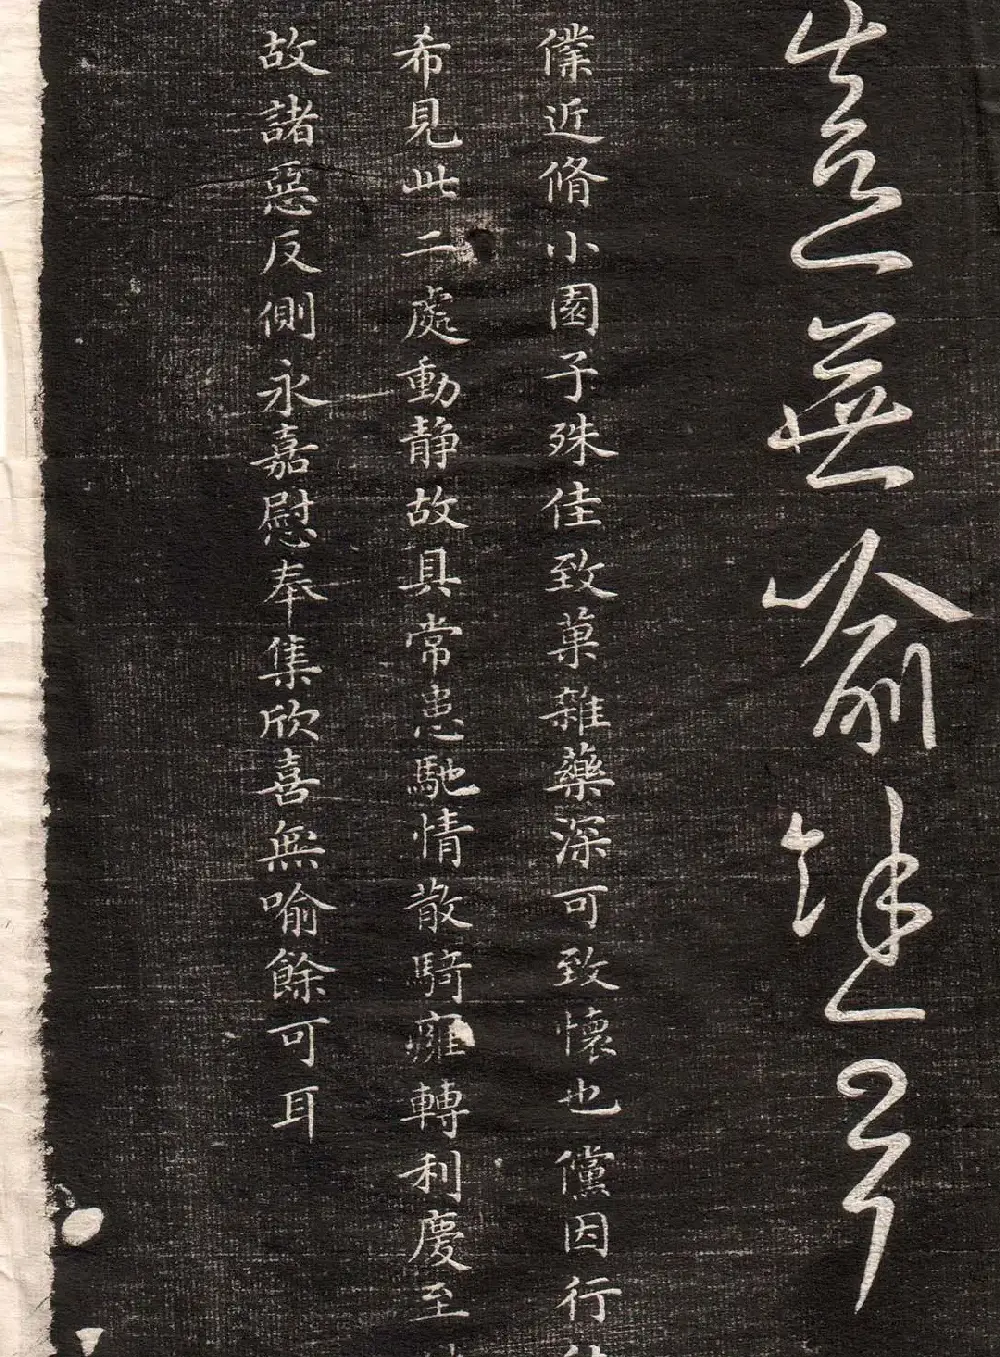 喜無喻餘可耳
僕近脩小園子殊佳致菓雜藥深可致懷也儻因行
希見此二處動靜故具常患馳情散騎癰轉利慶至
故諸惡反側永嘉慰奉集欣喜無喻餘可耳